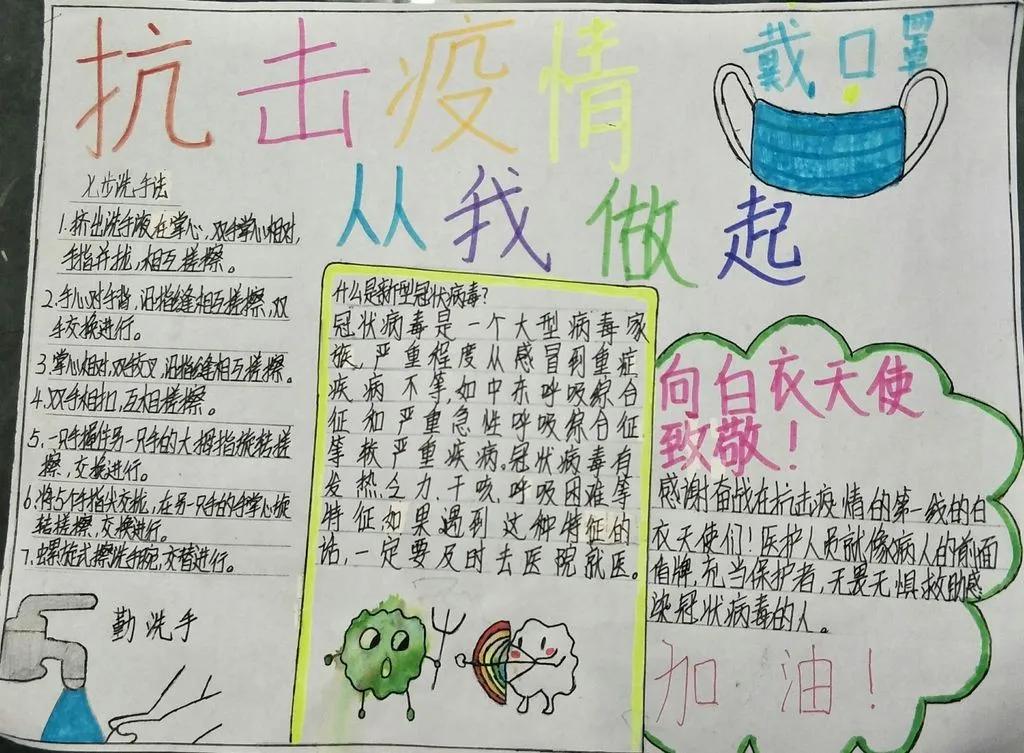 抗击疫情
戴口罩
从我做起
七步洗手法
1.挤出洗手液在掌心,双手掌心相对,
手指并拢,相互搓擦。
2.手心对手背,沿指缝相互搓擦,双
手交换进行。
3.掌心相对,双手交叉,沿指缝相互搓擦。
4.双手相扣,互相搓擦。
5.一只手握住另一只手的大拇指旋转搓
擦,交换进行。
6.将5个手指尖并拢,在另一只手的手掌心旋
转搓擦,交换进行。
7.螺旋式擦洗手腕,交替进行。
勤洗手
什么是新型冠状病毒?
冠状病毒是一个大型病毒家
族,严重程度从感冒到重症
疾病不等,如中东呼吸综合
征和严重急性呼吸综合征
等较严重疾病。冠状病毒有
发热乏力、干咳、呼吸困难等
特征如果遇到这种特征的
话,一定要及时去医院就医。
向白衣天使
致敬!
感谢奋战在抗击疫情的第一线的白
衣天使们!医护人员就像病人的前面
盾牌,充当保护者,无畏无惧救助感
染冠状病毒的人。
加油!